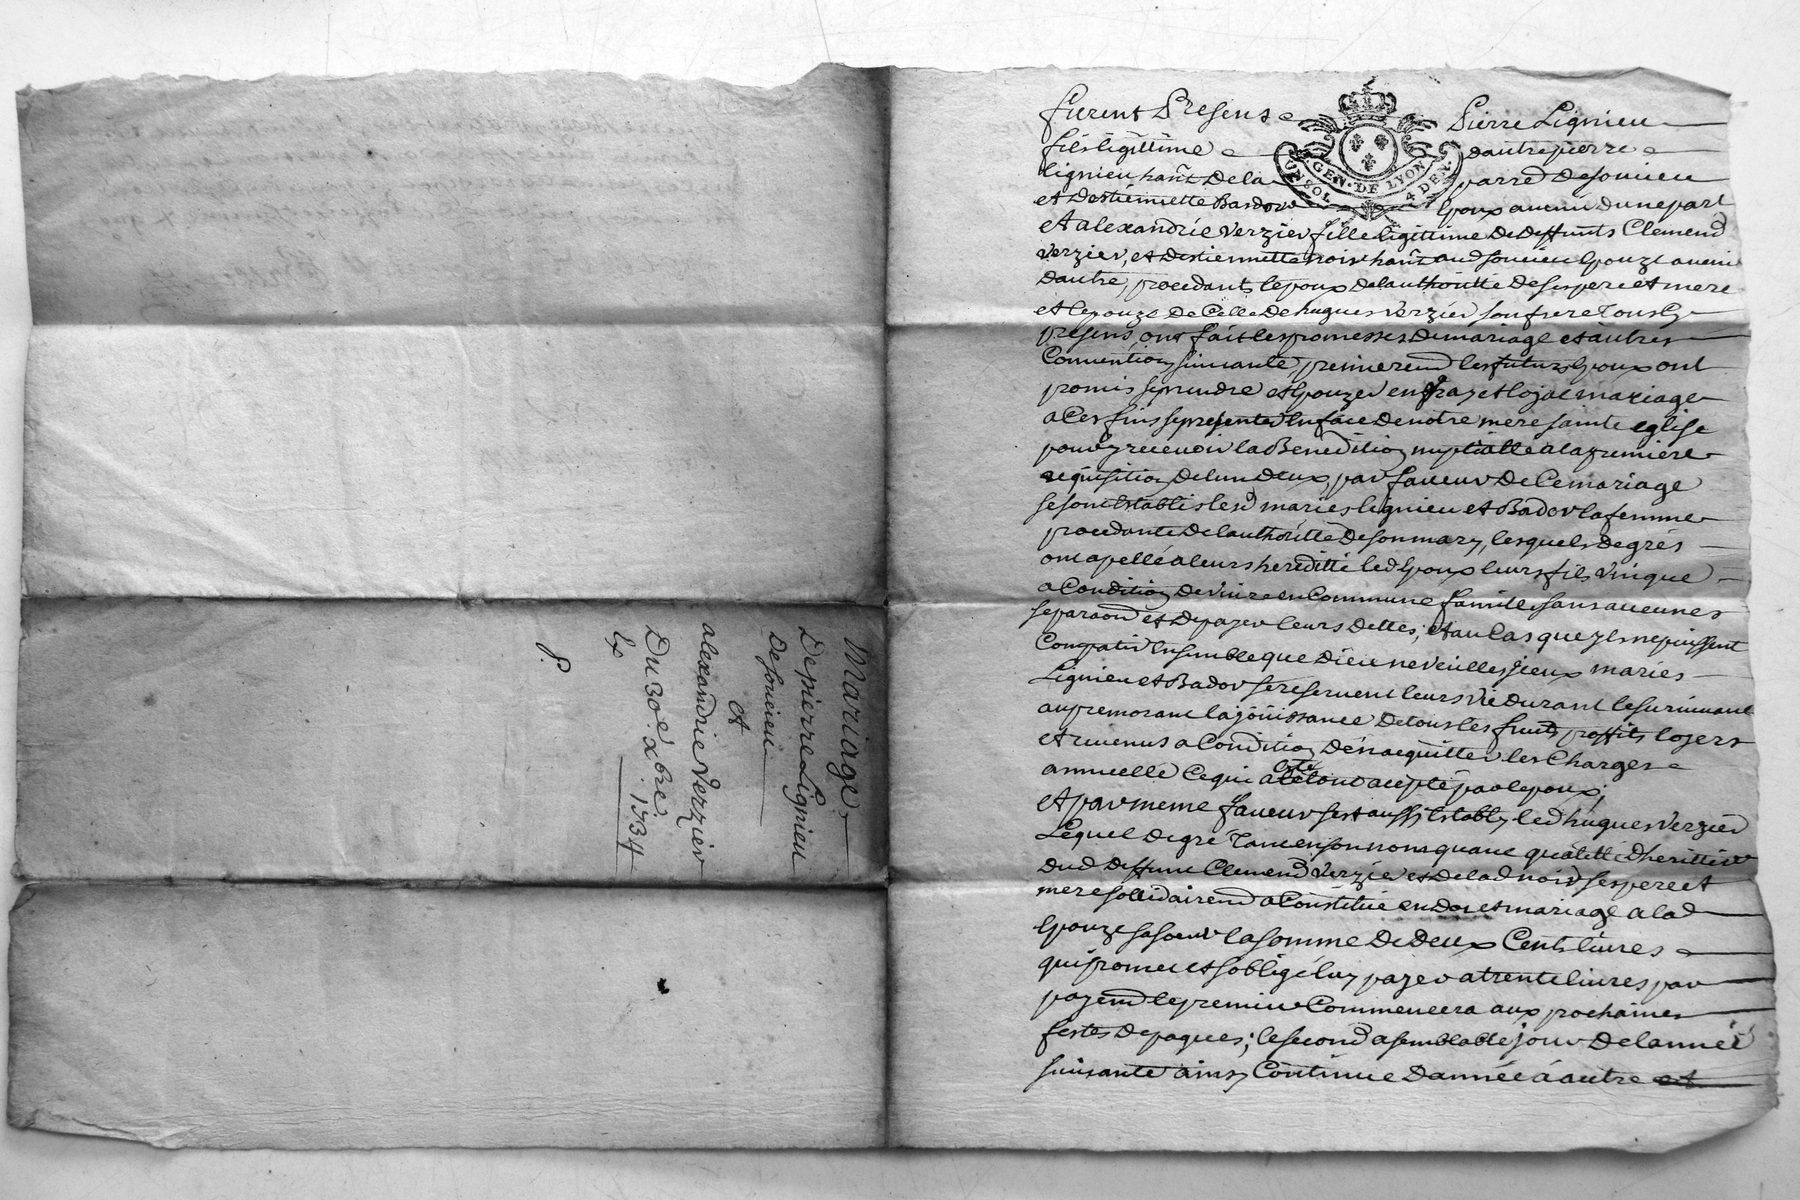 Mariage
De pierre Lignieu
De soucieu
et
alexandrie Verzier
Du 30e xbre 1734
Ex
P.
furent Presens Pierre Lignieu
fils ligittime dautre pierre
lignieu hant de la parre de soucieu
et destiennette Bador Epoux avenir dune part
et alexandrie verzier fille ligittime de deffunts Clemend
verzier, et destiennette noir hant aud soucieu Epouze avenir
dautre, procedants lepoux de lauthoritté de ses pere et mere
et lepouze de Celle de hugues verzier son frere Tous Cy
presens, ont fait les promesses de mariage et autres
Convention suivante, premieremt les futurs Epoux ont
promis se prendre et Epouzer en vray et loyal mariage
a Ces fins se presenter En face de notre mere sainte eglise
pour y recevoir la Benedition nuptialle a la premiere
requisition de lun deux, par faveur de Ce mariage
se sont Establis lesd maries lignieu et Bador la femme
procedante de lauthoritté de son mary, lesquels de grés
ont apellé a leurs hereditté led Epoux leurs fils Vnique
a Condition de vivre en Commune famille sans aucunes
separaon et de payer leurs dettes; et au Cas que yls ne puissent
Compatir Ensemble que dieu ne veuille, yceux maries
Lignieu et Bador se reservent leurs vie durant le survivant
au premorant la joüissance de tous les fruits proffits loyers
et revenus a Condition den acquitter les Charges
annuelle Ce qui a Esté tout acepté par lepoux;
et par meme faveur sest aussy Estably led hugues Verzier
Lequel de gré Tant en son nom quant qualitté dherittier
dud deffunt Clemend Verzier et de lad noir ses pere et
mere sollidairemt a Constitué en dot et mariage a lad
Epouze sa soeur la somme de deux Cents livres
qui promet et soblige luy payer a trente livres par
payemt le premier Commencera aux prochaines
festes de paques; le second a semblable jour de lannée
suivante ainsy Continue dannée á autre et
GEN. DE LYON
UN SOL
4 DEN.